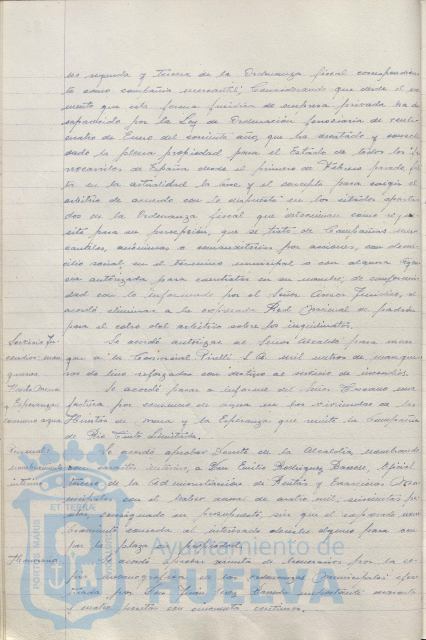 segunda y tercera de la Ordenanza fiscal correspondien
te como compañia mercantil; Considerando que desde el mo
mento que esta forma juridica de empresa privada ha de
saparecido por la Ley de Ordenación ferroviaria de veinti
cuatro de Enero del corriente año, que ha
la plena propiedad para el Estado de todos los fe
rrocarriles de España desde el primero de Febrero pasado, fal
ta en la actualidad la base y el concepto para exigir el
arbitrio de acuerdo con lo dispuesto en los citados aparta
dos de la Ordenanza fiscal que determinan como requi
sito para su percepción, que se trate de Compañias mer
cantiles, anónimas o comanditarias por acciones, con domi
cilio social en el término municipal o con alguna
autorizada para contratar en su nombre; de conformi
dad con lo informado por el Señor Asesor Juridico, se
acordó eliminar a la expresada Red Nacional de padrón
para el cobro del arbitrio sobre los inquilinatos.
Servicio In
cendios: man
gueras
Se acordó autorizar al Señor Alcalde para
a la Comercial Pirelli S.A. mil metros de mangue
ras de lino reforzadas con destino al servicio de incendios.
Huerta Mena
y Esperanza:
consumo agua
Se acordó pasar a informe del Señor
factura por consumo de agua en las viviendas de las
Huertas de Mena y la Esperanza que remite la Compañia
de Rio Tinto Limitada.
nombramiento
interino
Se acordó aprobar Decreto de la Alcaldia, nombrando
con carácter interino, a Don Emilio Rodriguez Oficial
tercero de la Administración de Rentas y Exacciones Mu
nicipales con el haber anual de cuatro mil, quinientas pe
setas, consignado en presupuesto, sin que el expresado nom
bramiento conceda al interesado derecho alguno para ocu
par la plaza en propiedad.
Honorarios
Se acordó aprobar minuta de honorarios por la co
pia mecanográfica de las ordenanzas municipales efec
tuada por Don Juan importante
y cuatro pesetas con cincuenta centimos.
PORTUS MARIS
ET TERRAE
Ayuntamiento de
HUELVA